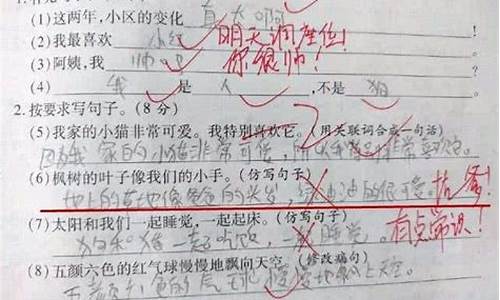 (1)这两年,小区的变化 真大啊
(2)我最喜欢 小红 明天调座位!
(3)阿姨,我 帅吗 你很帅!
(4) 我 是 人 ,不是 狗
2.按要求写句子。(8分)
(5)我家的小猫非常可爱。我特别喜欢它。(用关联词合成一句话)
因为我家的小猫非常可爱,所以我 非常喜欢它。
(6)枫树的叶子像我们的小手。(仿写句子)
地上的草地像爸爸的头发,绿油油的很可爱。
(7)太阳和我们一起睡觉,一起起床。(仿写句子)
狗和猪一起吃饭,一起睡觉。 有点常识!
(8)五颜六色的红气球慢慢地飘向天空。(修改病句)
五颜六色的气球慢慢地飘上天空。